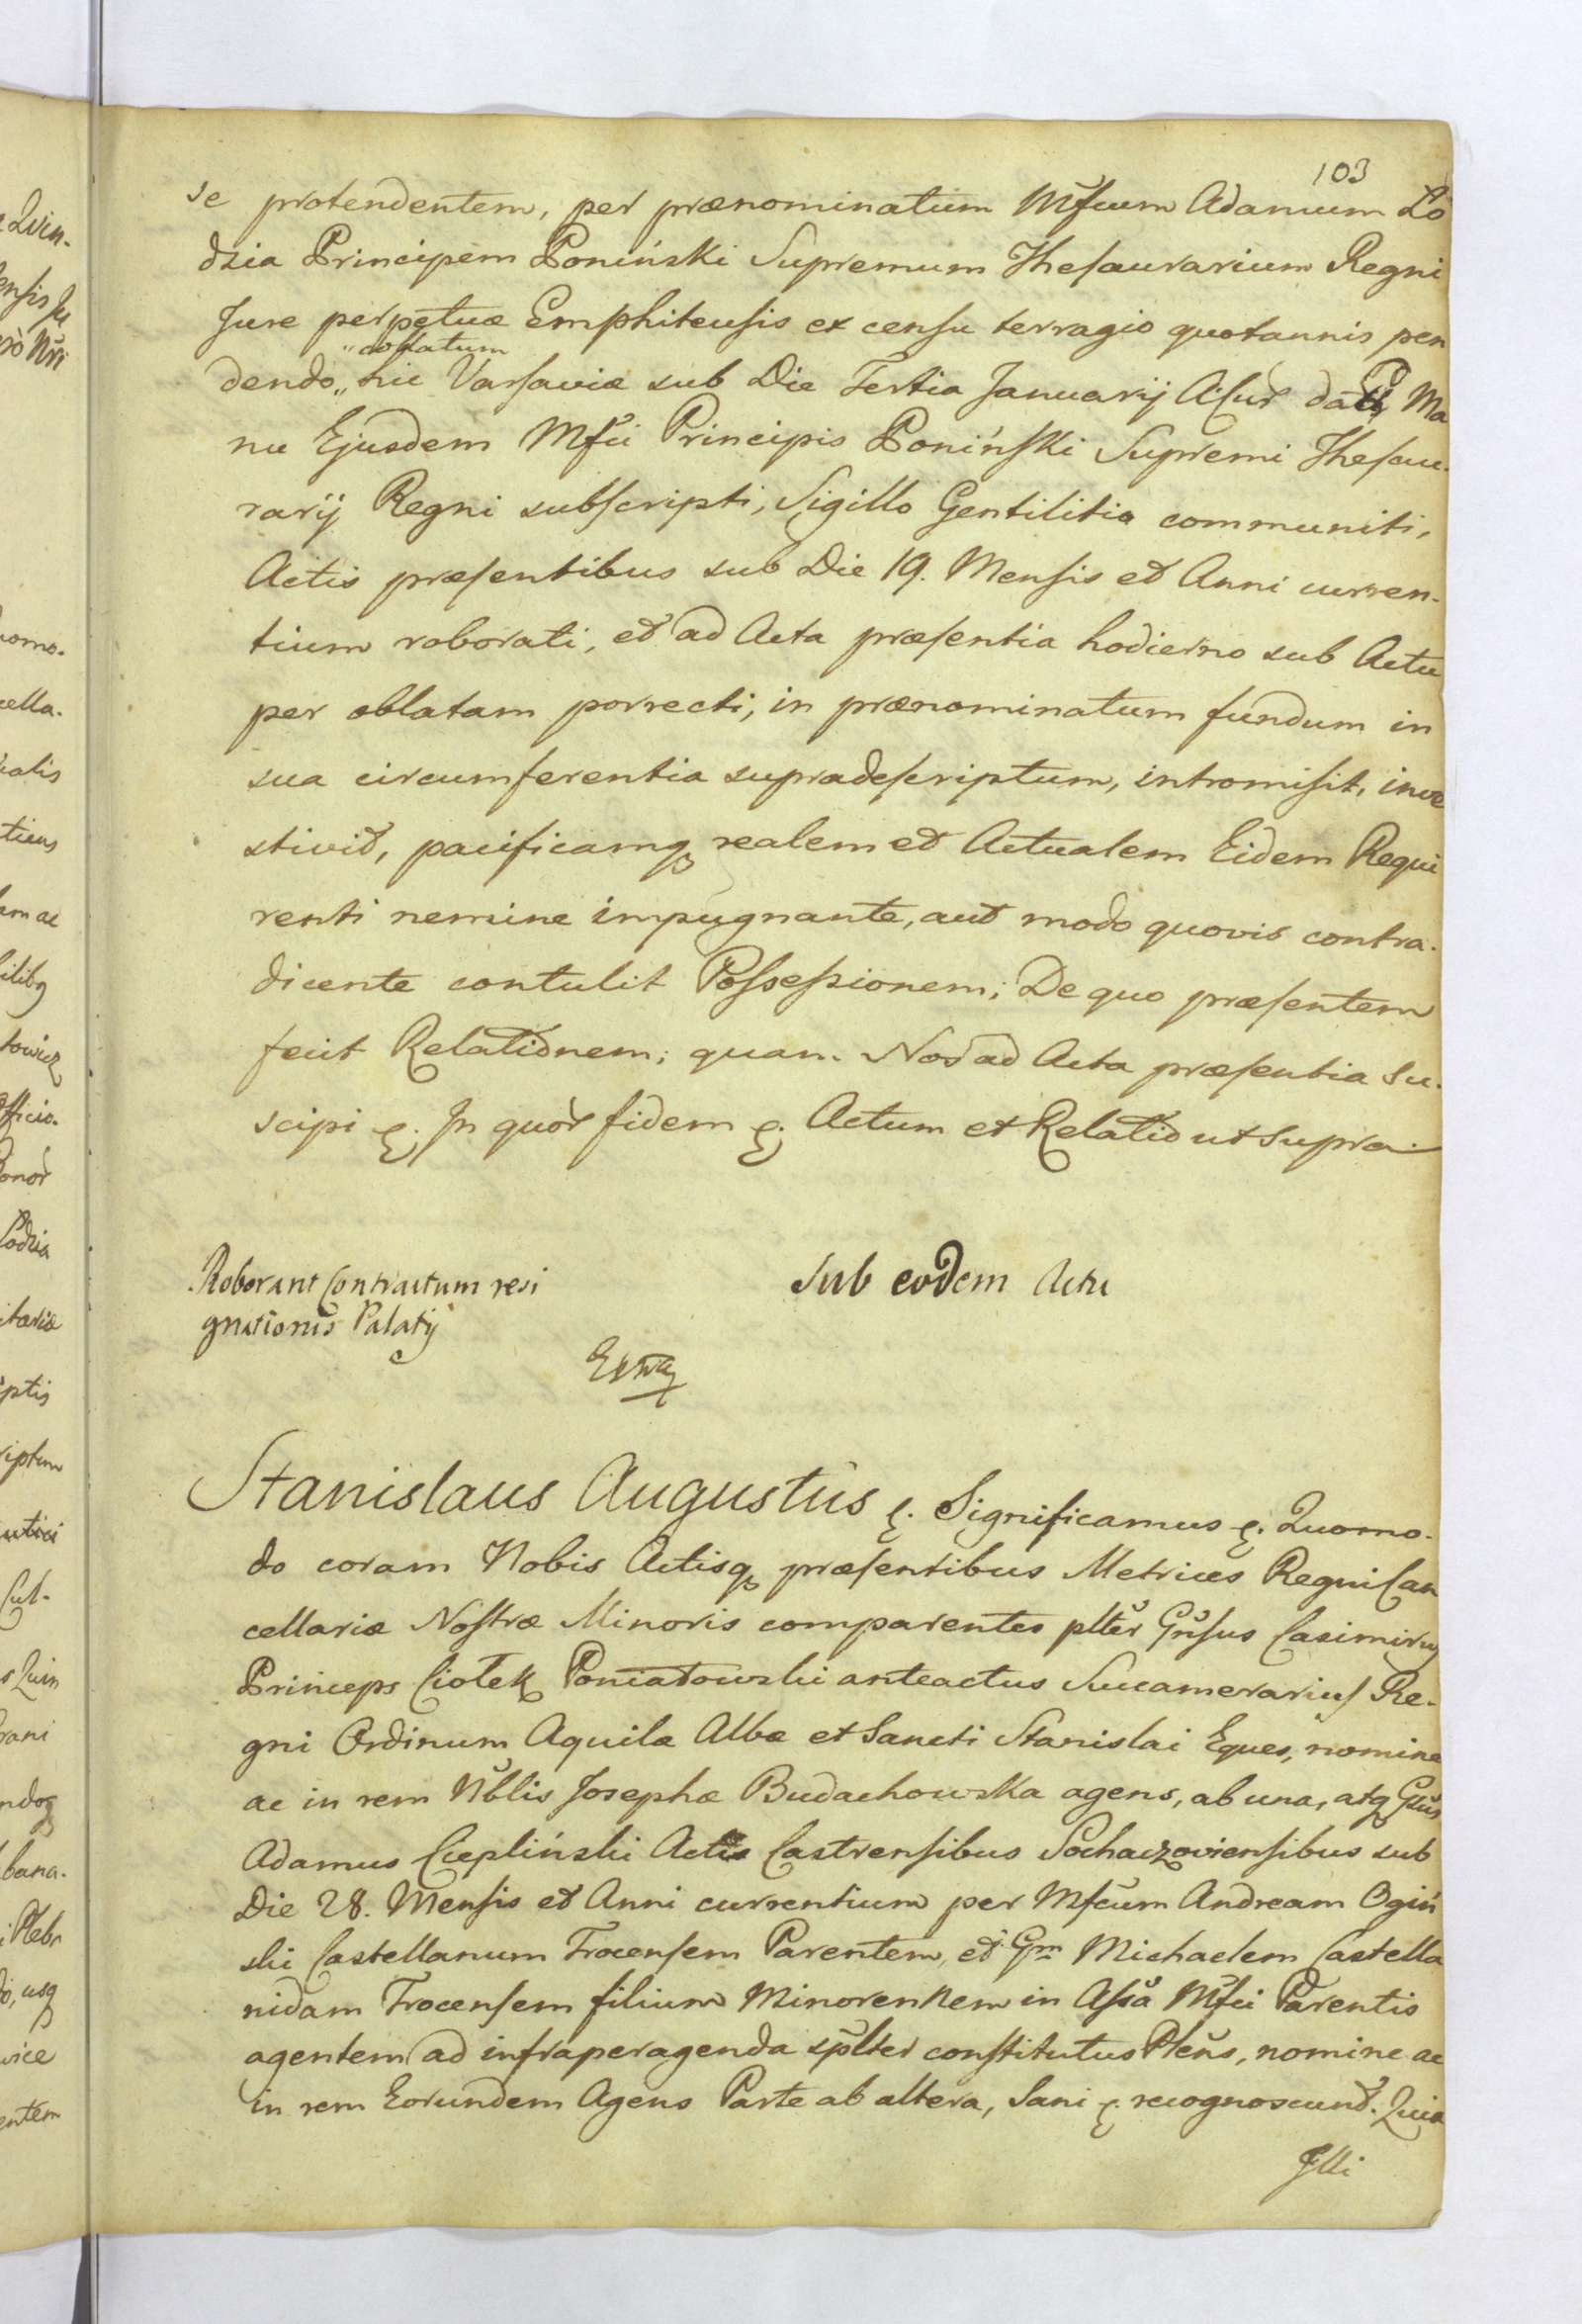 103
se protendentem, per prænominatum Mfcum Adamum Lo
dzia Principem Poniński Supremum Thesaurarium Regni
Jure perpetuæ Emphiteusis ex censu terragio quotannis pen
„collatum
dendo „ hic Varsaviæ sub Die Tertia Januarij A. cur. Ma
nu Ejusdem Mfci Principis Poniński Supremi Thesau-
rarij Regni subscripti, Sigillo Gentilitio communiti,
Actis præsentibus sub Die 19. Mensis et Anni curren-
tium roborati, et ad Acta præsentia hodierno sub Actu
per oblatam porrecti, in prænominatum fundum in
sua circumferentia supradescriptum, intromisit, inve
stivit, pacificamq realem et Actualem Eidem Requi
renti nemine impugnante, aut modo quovis contra-
dicente contulit Possessionem; De quo præsentem
fecit Relationem; quam Nos ad Acta præsentia su-
scipi &. In quor fidem &. Actum et Relatio ut supra.
Roborant Contractum resi
gnationis Palatij
Sub eodem Actu
Stanislaus Augustus &. Significamus &. Quomo-
do coram Nobis Actisq præsentibus Metrices Regni Can
cellariæ Nostræ Minoris comparentes plter Gnsus Casimirus
Princeps Ciołek Poniatowski anteactus Succamerarius Re-
gni Ordinum Aquilæ Albæ et Sancti Stanislai Eques, nomine
ac in rem Nblis Josephæ Budachowska agens, ab una, atq Gnsus
Adamus Ciepliński Actis Castrensibus Sochaczoviensibus sub
Die 28. Mensis et Anni currentium per Mfcum Andream Ogiń
ski Castellanum Trocensem Parentem, et Gm Michaelem Castella
nidam Trocensem filium Minorennem in Assa Mfci Parentis
agentem ad infraperagenda splter constitutus Plens, nomine ac
in rem Eorundem Agens Parte ab altera, Sani &. recognoscunt. Quia
Illi